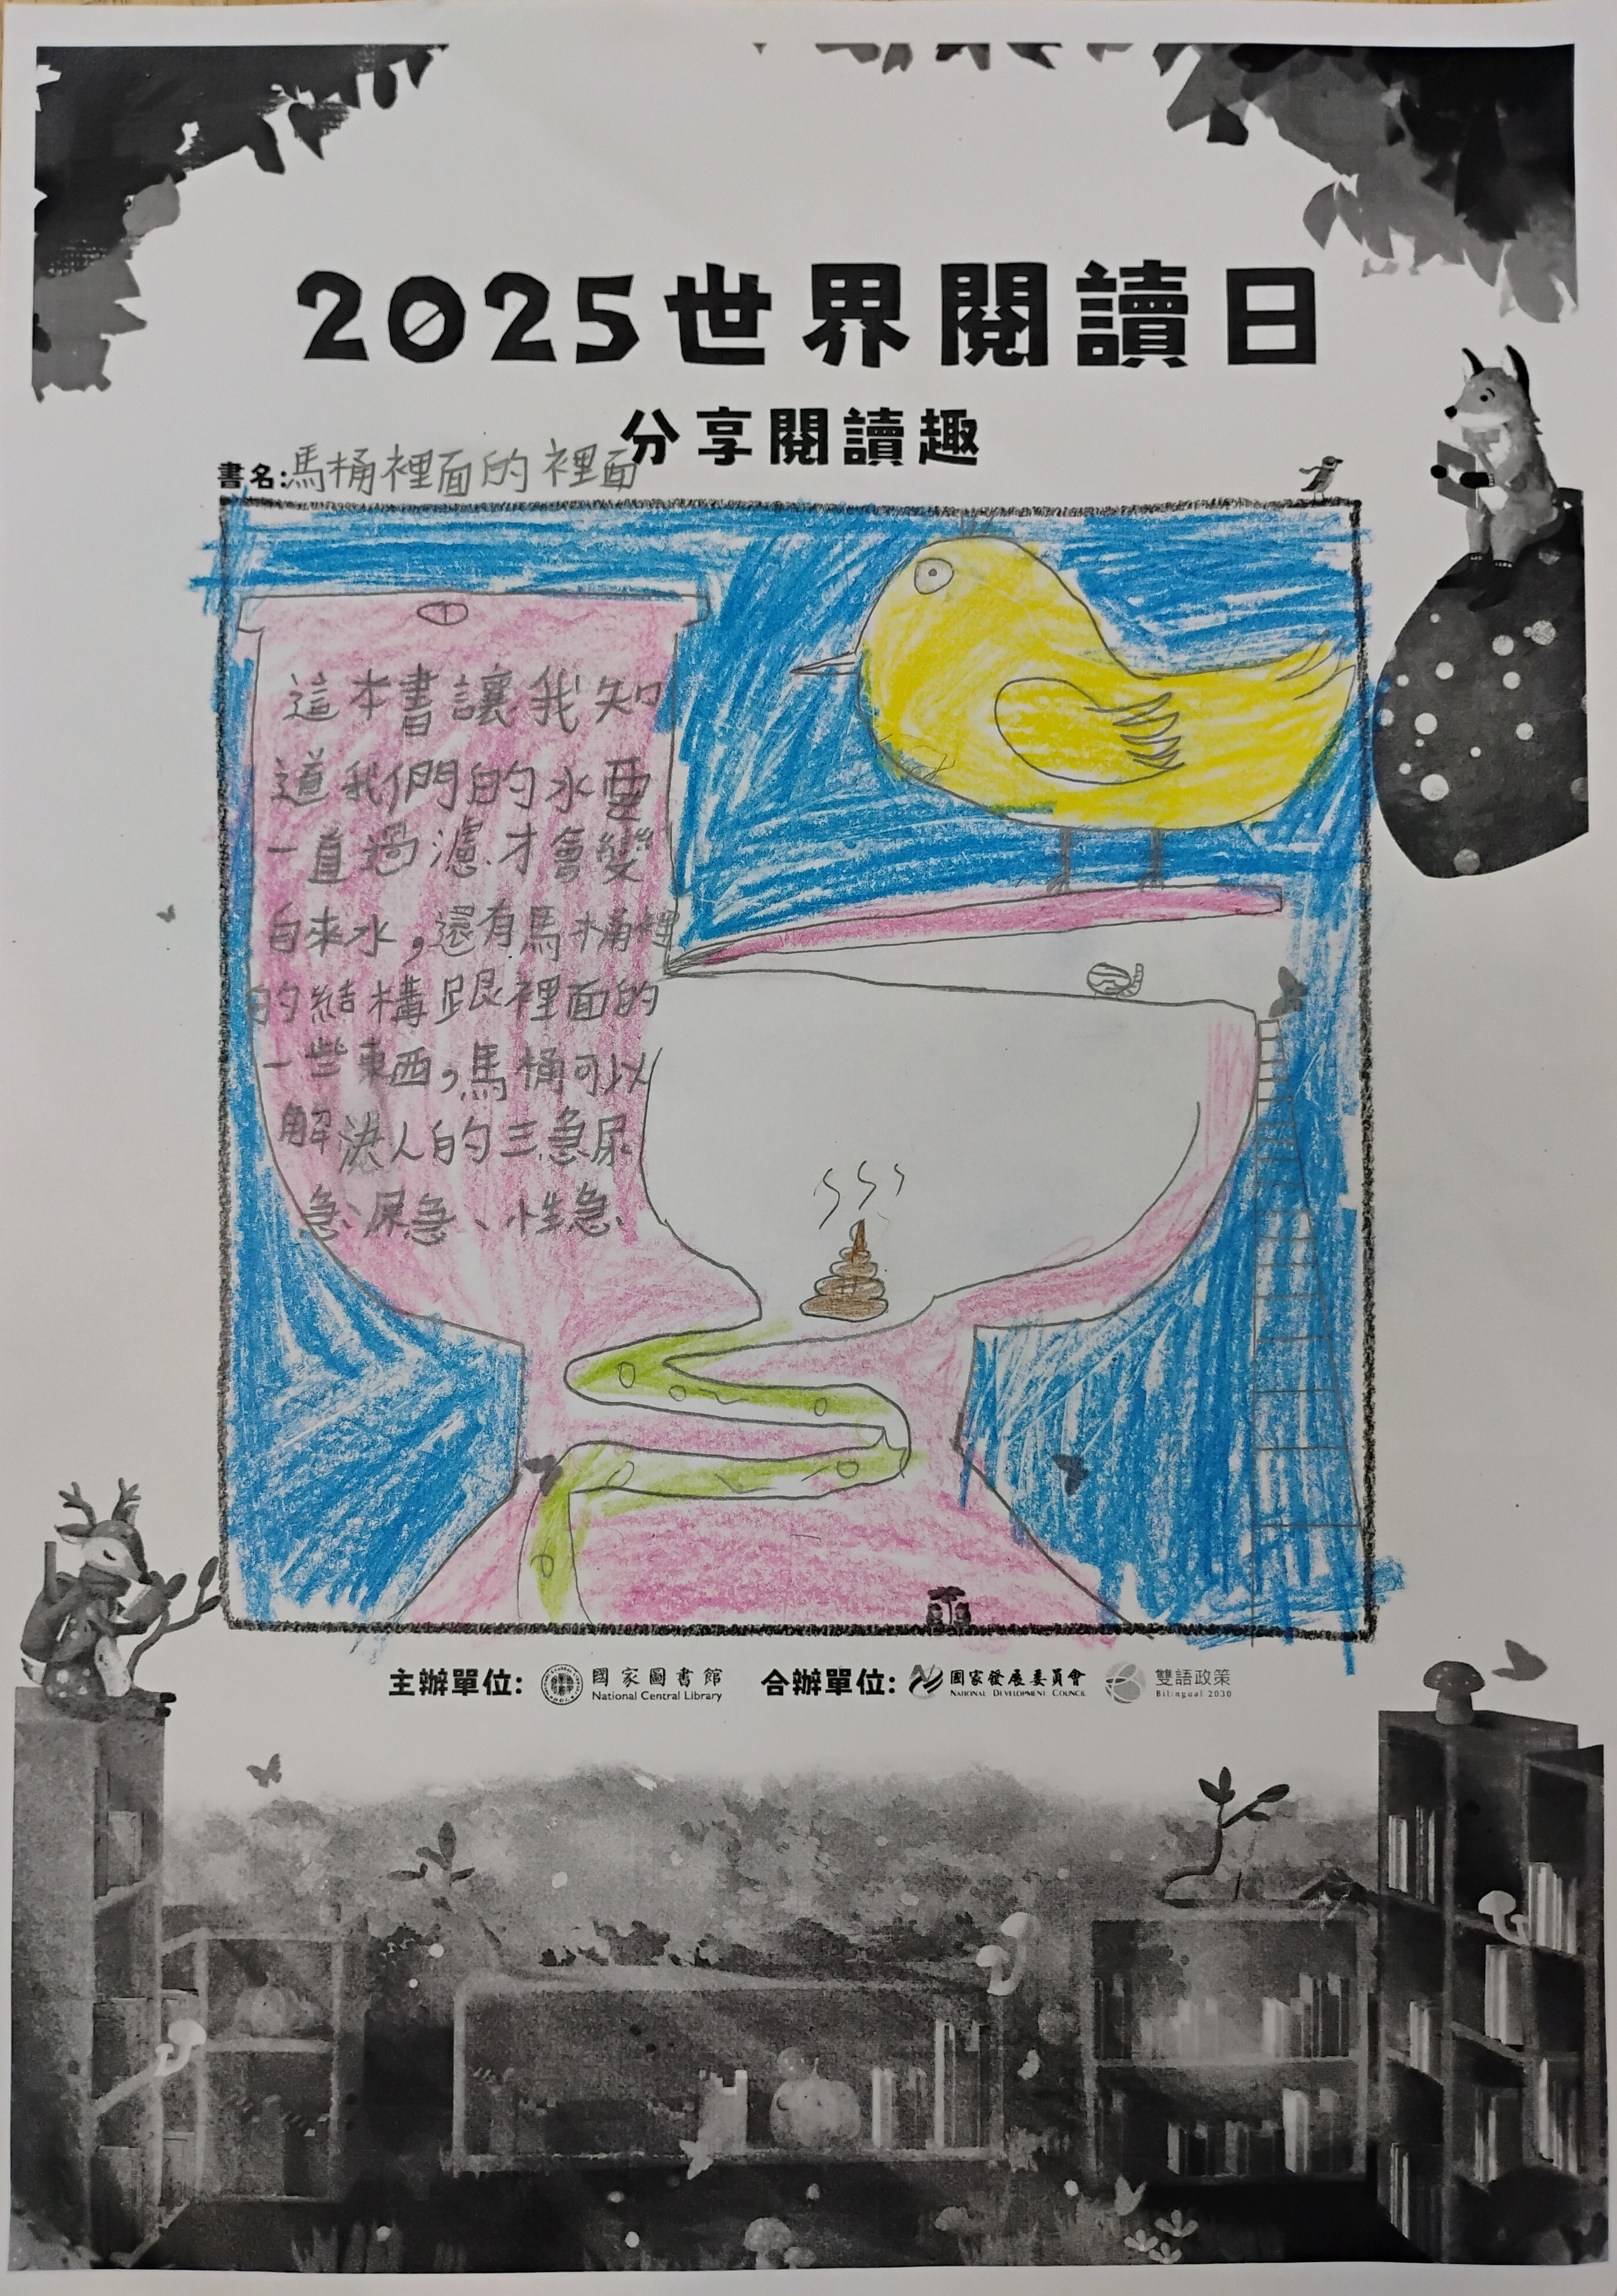 2025世界閱讀日
分享閱讀趣
書名:馬桶裡面的裡面
這本書讓我知
道我們的水要
一直過濾才會變
自來水，還有馬桶裡
的結構跟裡面的
一些東西，馬桶可以
解決人的三急尿
急、屎急、性急、
主辦單位: 國家圖書館 合辦單位: 國家發展委員會 雙語政策
National Central Library NATIONAL DEVELOPMENT COUNCIL Bilingual 2030